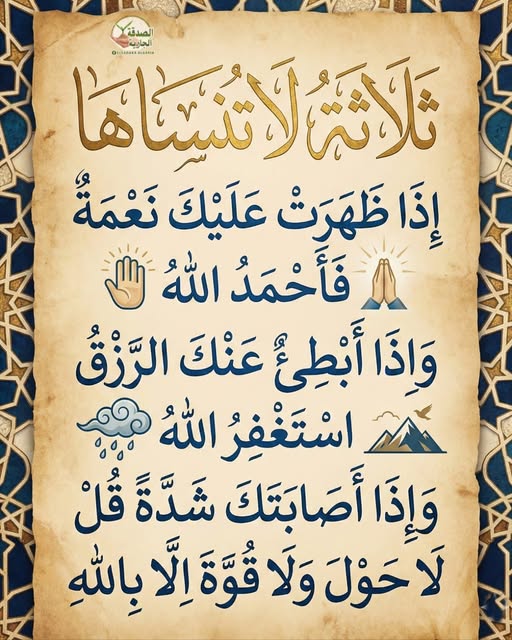 الصدقة
الجارية
ثَلَاثَةٌ لَا تُنسَاهَا
إِذَا ظَهَرَتْ عَلَيْكَ نَعْمَةٌ
فَأَحْمَدُ اللهُ
وَإِذَا أَبْطِئٌ عَنْكَ الرَّزْقُ
اسْتَغْفِرُ اللهُ
وَإِذَا أَصَابَتَكَ شَدَّةً قُلْ
لَا حَوْلَ وَلَا قُوَّةَ اِلَّا بِاللهِ